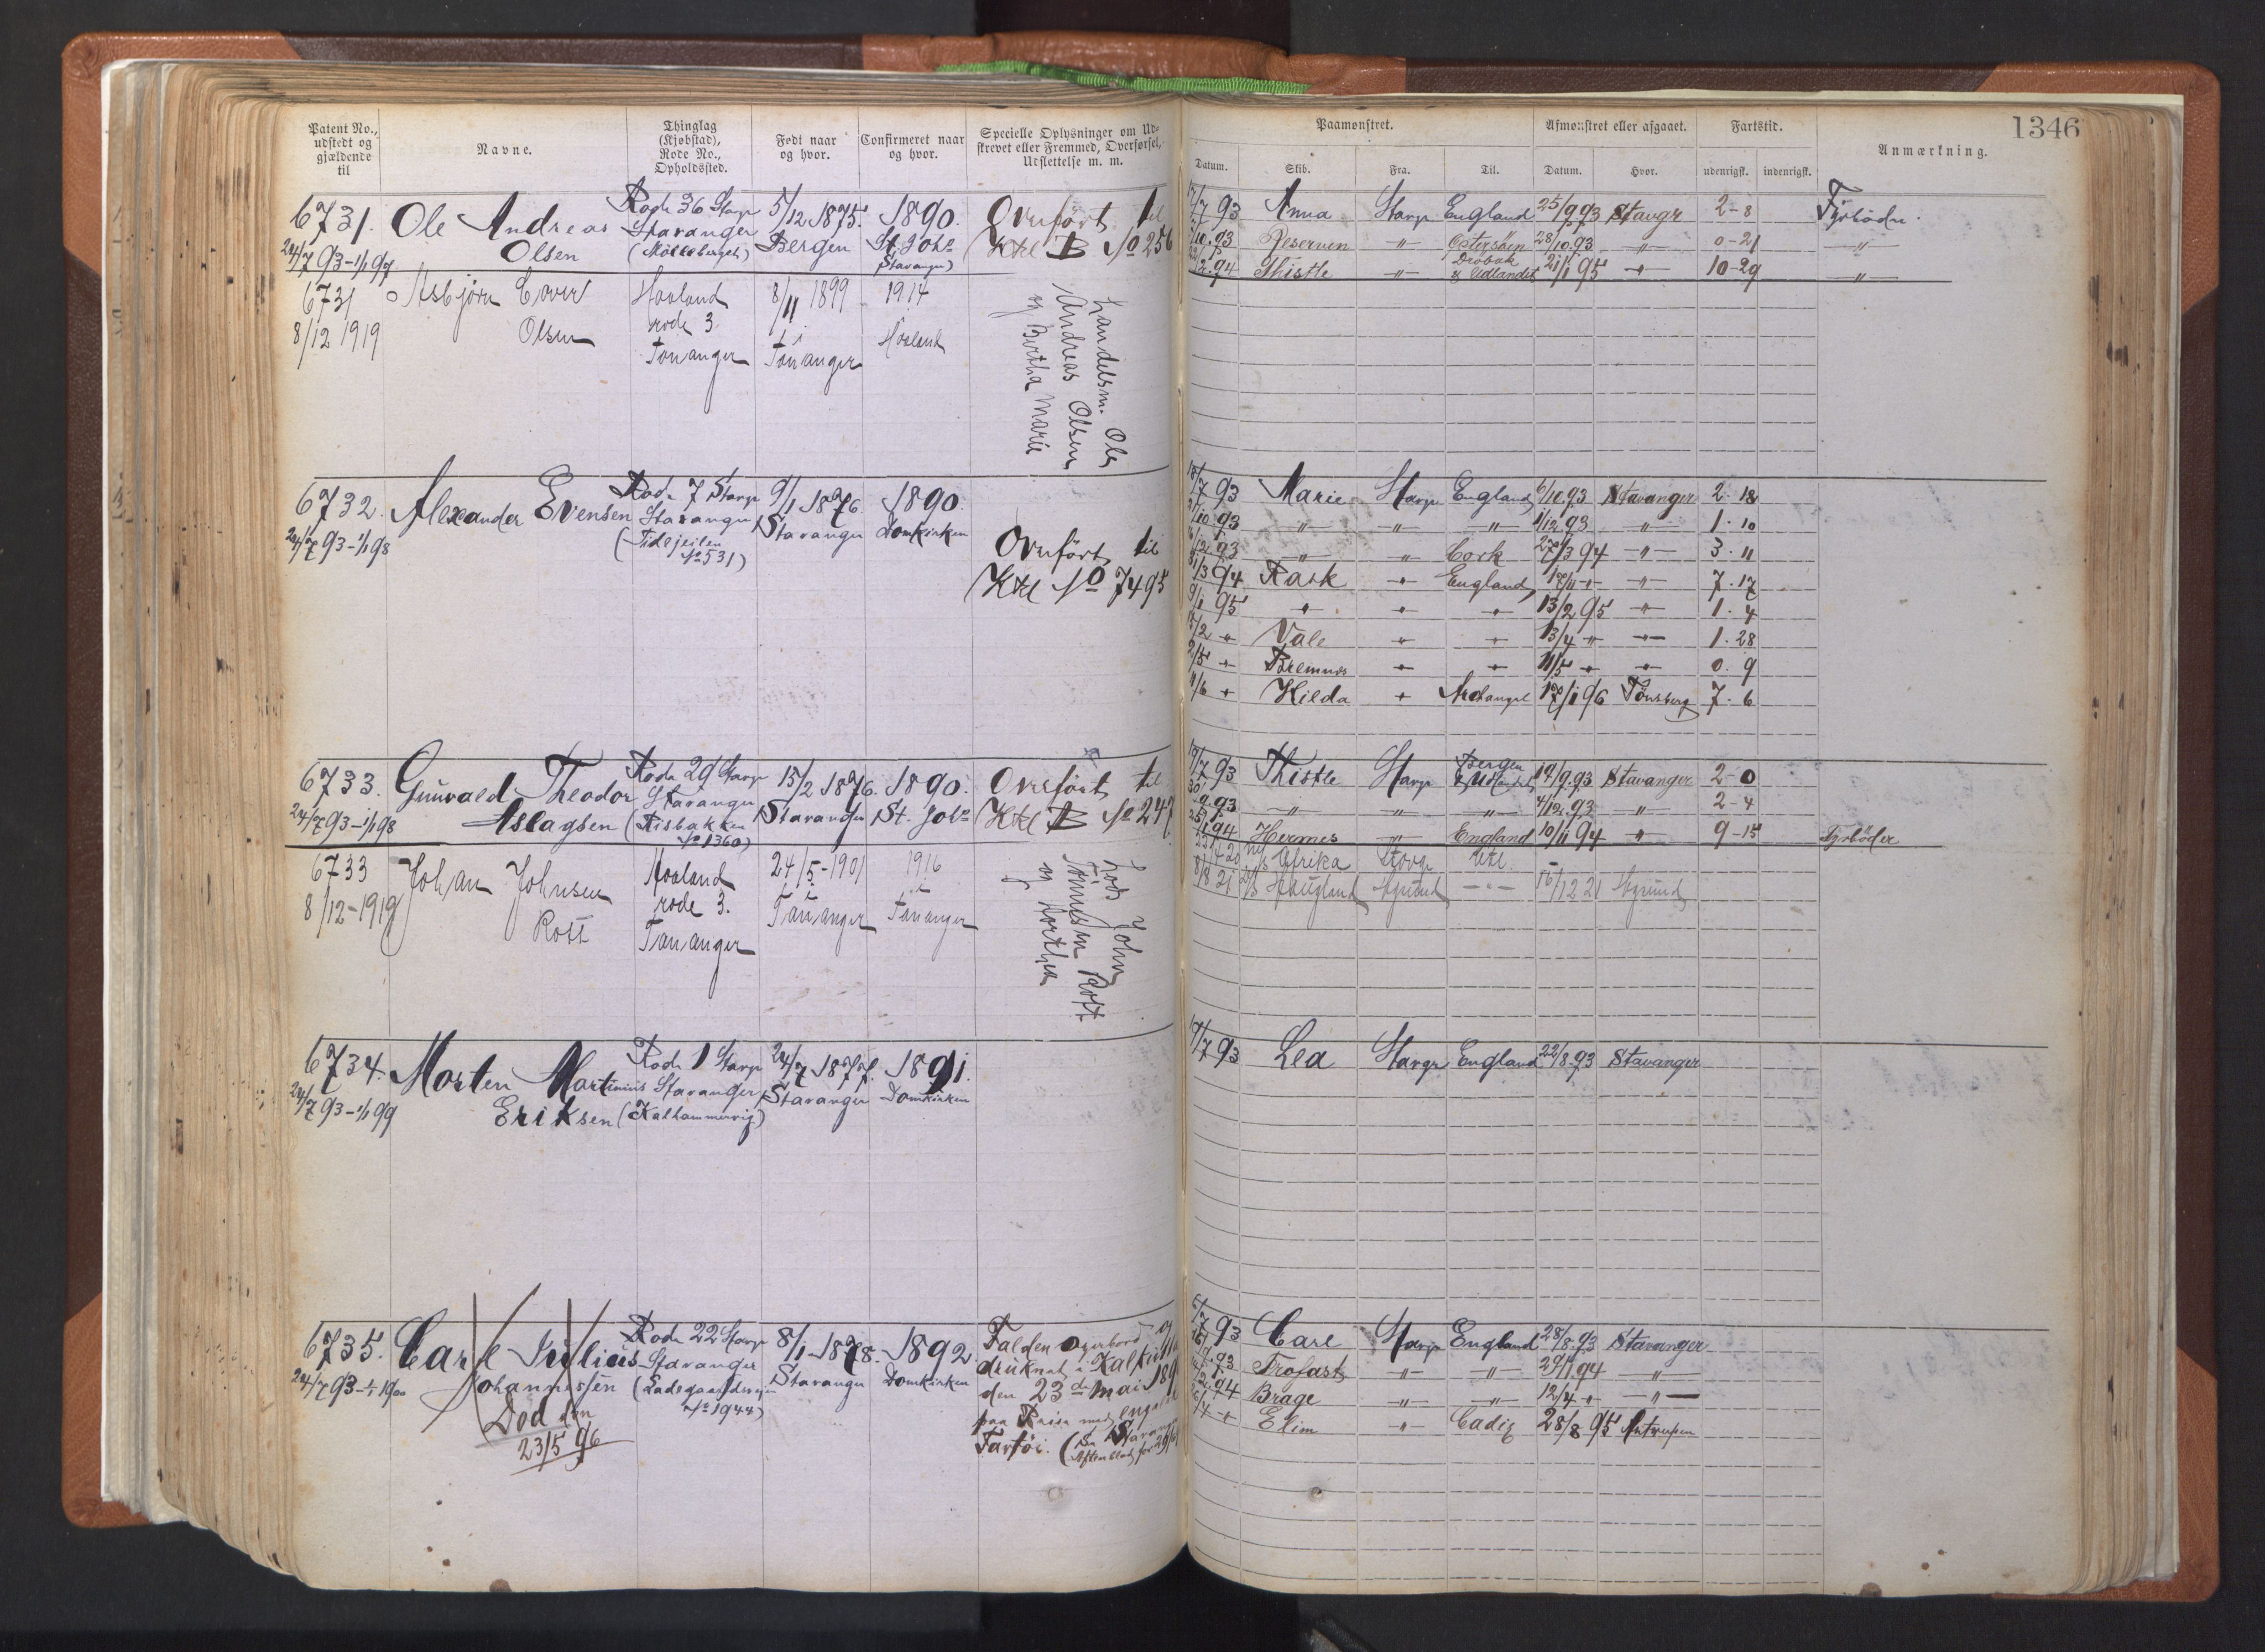 1346
Patent No., udstedt og gjældende til
Navne.
Thinglag (Kjøbstad), Rode No., Opholdssted.
Født naar og hvor.
Confirmeret naar og hvor.
Specielle Oplysninger om Udskrevet eller Fremmed, Overførsel, Udslettelse m. m.
Paamønstret.
Afmønstret eller afgaaet.
Fartstid.
Anmærkning.
Datum. Skib. Fra. Til. Datum. Hvor. udenrigsk. indenrigsk.
6731. Ole Andreas Rode 36 Stavgr 5/12 1875. 1890. Overført til
Olsen Stavanger Bergen St. Johs Ktrl B No 256
24/7 93-1/1 97 (Møllebergets) Stavanger)
17/7 93 Anna Stavgr England 25/9 93 Stavgr 2-8 Fyrbøder.
10.93 Reserven " Østersøen 28/10.93 " 0-21 "
2.94 Thistle " Drøbak & Udlandet 21/1 95 " 10-29 "
6731 Asbjørn Enver Haaland 8/11 1899 1914
8/12 1919 Olsen rode 3. i Haaland
Tananger Tananger
Handelsm. Ole
Andreas Olsen
og Bertha Marie
6732. Alexander Evensen Rode 7 Stavgr 9/1 1876. 1890.
24/7 93-1/1 98 Stavanger Stavanger Domkirken
No 531)
Overført til
Ktrl No 7495
18/7 93 Marie Stavgr England 6/10.93 Stavanger 2.18
10.93 " " " 1/12 93 " 1.10
12.93 " " Cork 27/3 94 " 3.11
31/3 94 Rask " England 17/11 " " 7.17
9/1 95 " " " 13/2 95 " 1.4
15/2 " Vale " " 13/4 " " 1.28
2/5 " Bremnes " " 11/5 " " 0.9
11/6 " Hilda " Archangel 17/1 96 Tønsberg 7.6
6733. Gunvald Theodor Rode 29 Stavgr 15/2 1876. 1890. Overført til
24/7 93-1/1 98 Aslagsen Stavanger Stavanger St. Johs Ktrl B No 247
(Risbakken
No 1360)
19/7 93 Thistle Stavgr Bergen & Udlandet 14/9.93 Stavanger 2-0
9.93 " " " 4/12.93 " 2-4
1 94 Hermes " England 10/11 94 " 9-15 Fyrbøder
6733 Johan Johnsen Haaland 24/5-1901 1916
8/12-1919 Rott rode 3. i i
Tananger Tananger Tananger
Lods John
Tønnesen Rott
og Dorthea
20 Afrika Stavgr Utl.
8/8 21 Haugland Hgsund " 16/12 21 Hgsund
6734. Morten Martinius Rode 1 Stavgr 24/7 1877. 1891.
24/7 93-1/1 99 Eriksen Stavanger Stavanger Domkirken
(Kalhammervig)
19/7 93 Lea Stavgr England 22/8.93 Stavanger
6735. Carl Julius Rode 22 Stavgr 8/1 1878. 1892.
24/7 93-1/1 1900 Johannessen Stavanger Stavanger Domkirken
No 1944)
Død den
23/5 96
Falden overbord og
druknet i
den 23de Mai
paa Reise med
Fartøi.
7 93 Carl Stavgr England 28/8.93 Stavanger
93 Profast " " 29/1.94 "
2.94 Brage " " 12/4 " "
4 " Elim " Cadiz 28/8 95 Antwerpen